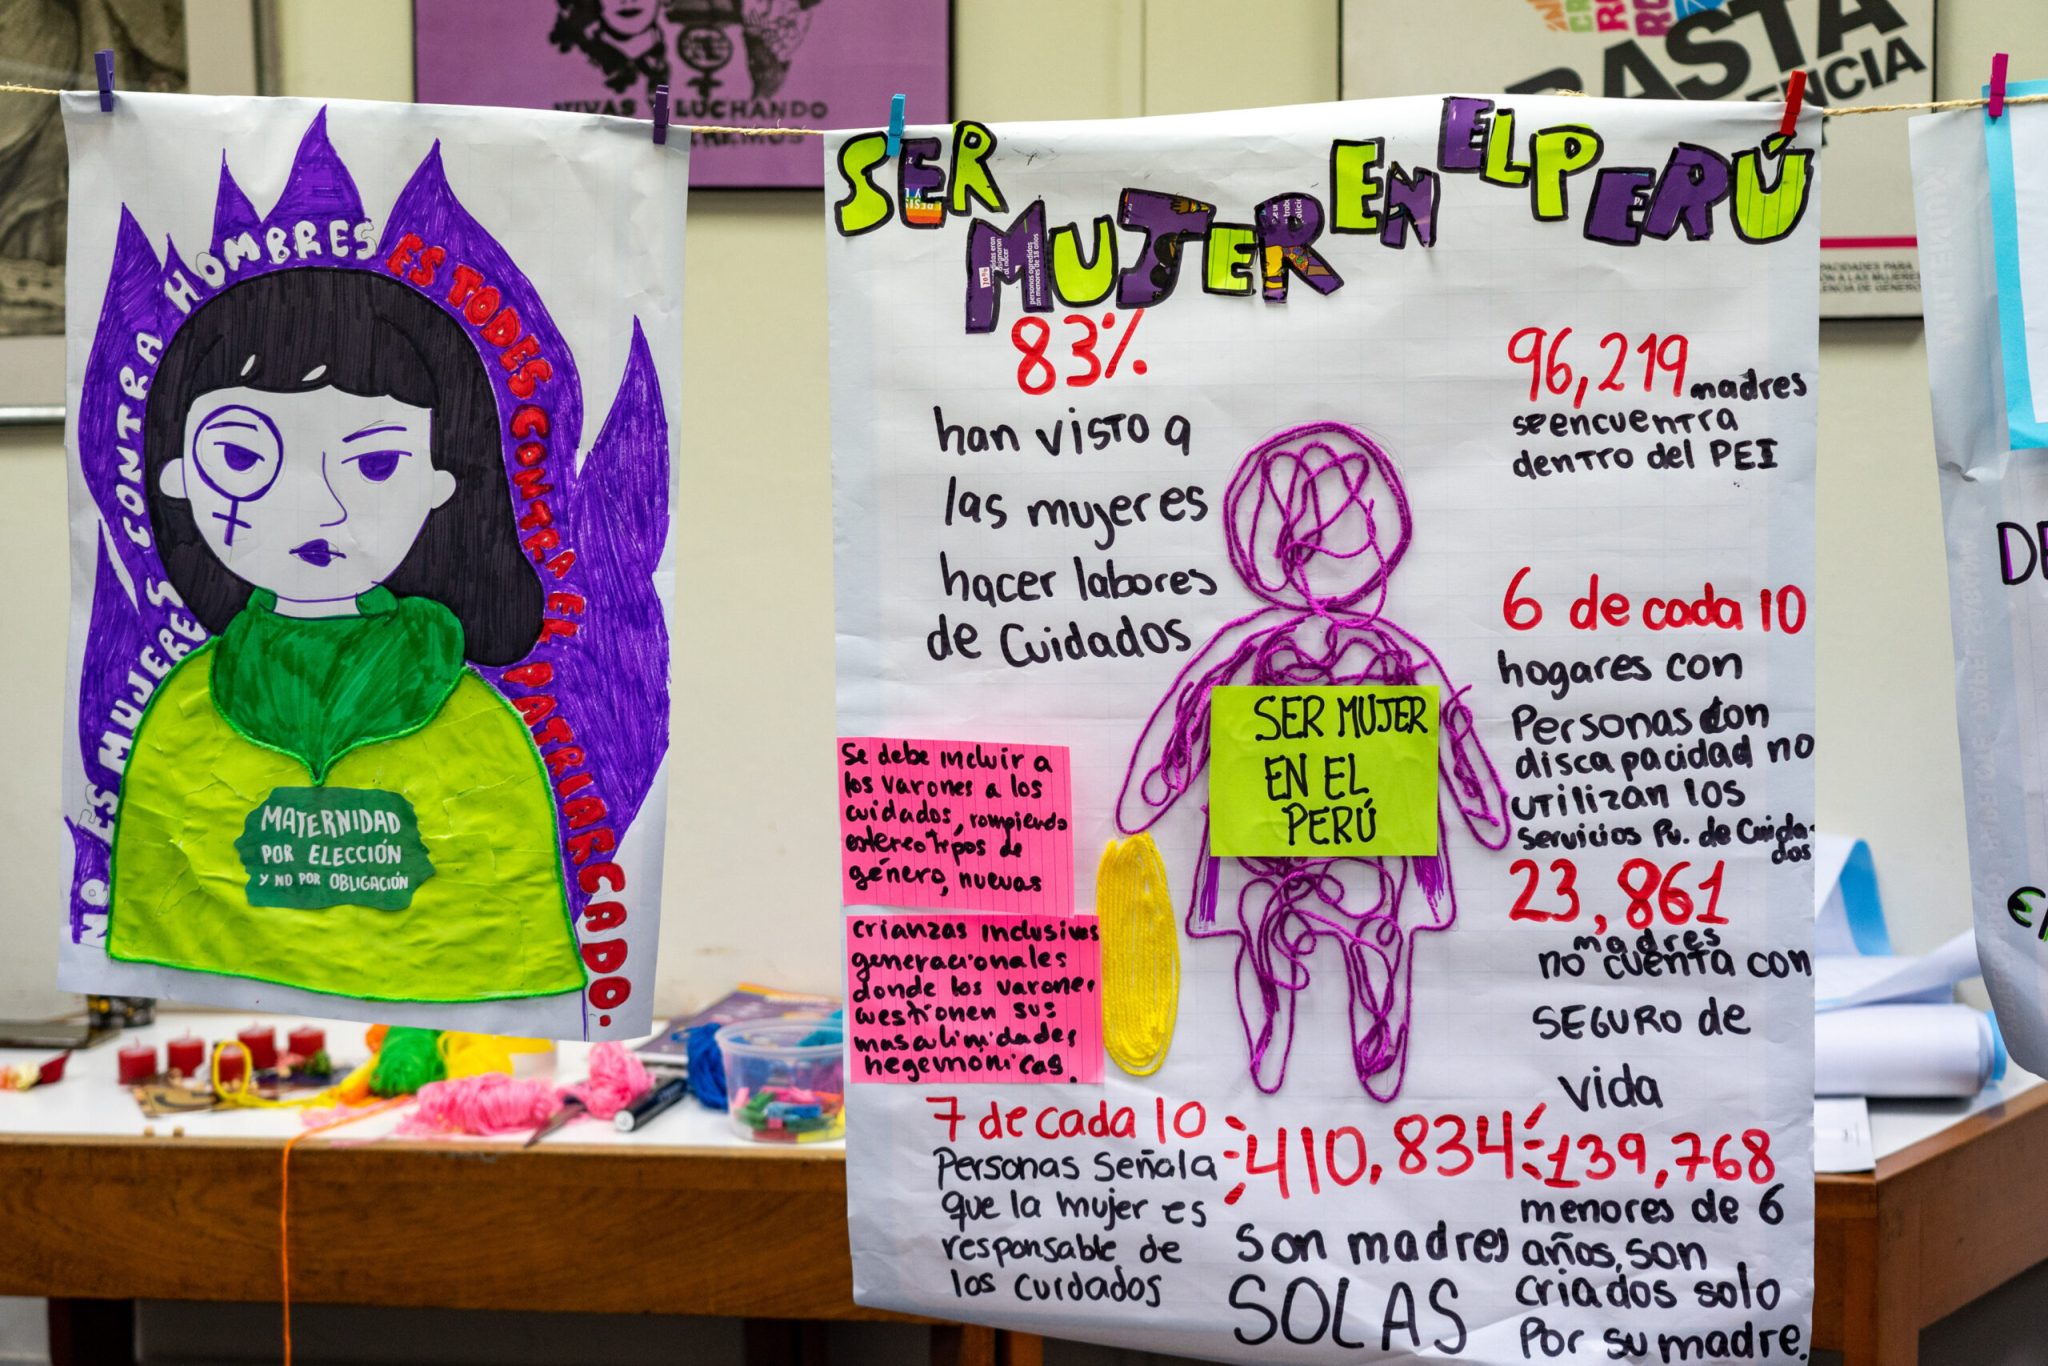 VIVAS Y LUCHANDO
BASTA
NO ES MUJERES CONTRA HOMBRES ES TODES CONTRA EL PATRIARCADO.
MATERNIDAD
POR ELECCIÓN
Y NO POR OBLIGACIÓN
SER MUJER EN EL PERÚ
83%
han visto a
las mujeres
hacer labores
de Cuidados
96,219 madres
se encuentra
dentro del PEI
6 de cada 10
hogares con
Personas con
discapacidad no
utilizan los
servicios Pu. de Cuida-
dos
23,861
madres
no cuenta con
SEGURO de
vida
SER MUJER
EN EL
PERÚ
Se debe incluir a
los varones a los
cuidados, rompiendo
estereotipos de
género, nuevas
crianzas inclusivas
generacionales
donde los varones
cuestionen sus
masculinidades
hegemónicas.
7 de cada 10
Personas Señala
que la mujer es
responsable de
los cuidados
410,834
Son madres
SOLAS
139,768
menores de 6
años, son
criados solo
Por su madre.